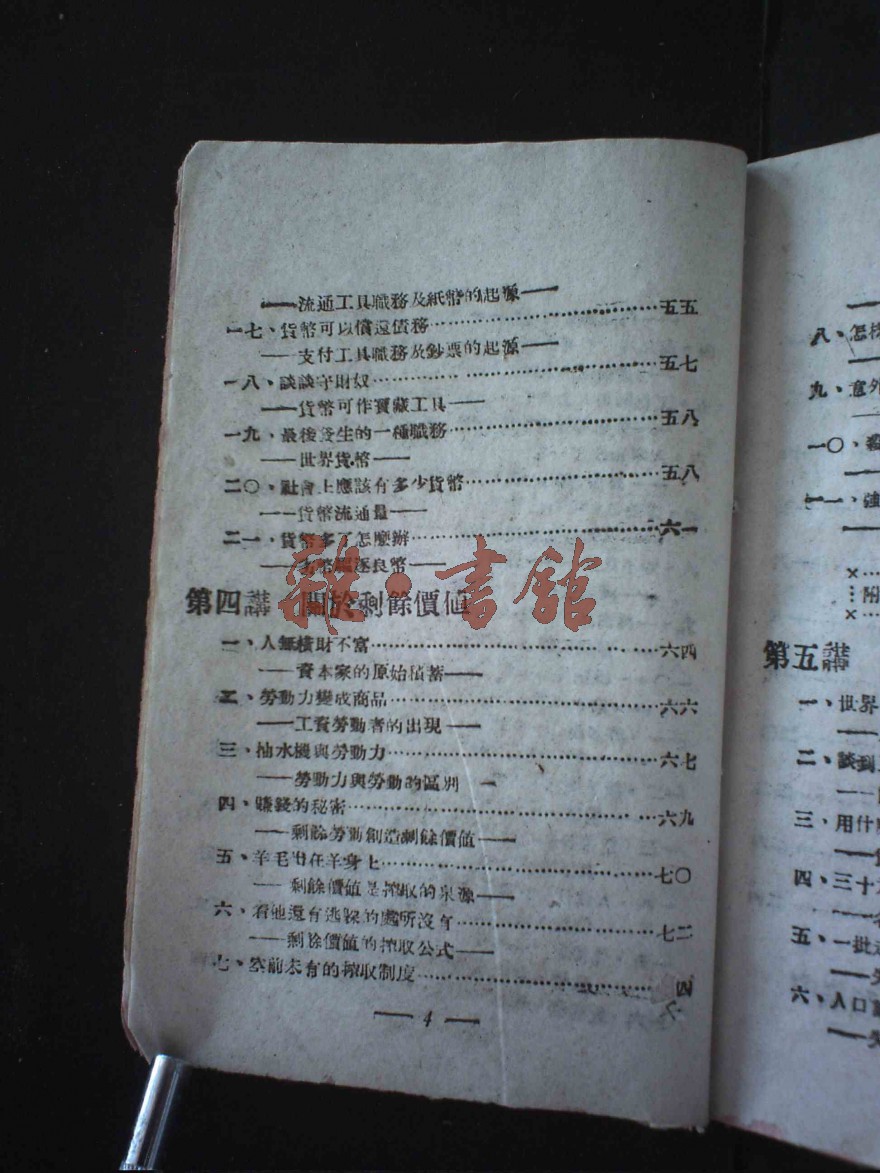 ——流通工具職務及紙幣的起源——
一七、貨幣可以償還債務……五五
——支付工具職務及鈔票的起源——
一八、談談守財奴……五七
——貨幣可作寶藏工具——
一九、最後發生的一種職務……五八
——世界貨幣——
二〇、社會上應該有多少貨幣……五八
——貨幣流通量——
二一、貨幣多了怎麼辦……六一
——劣幣驅逐良幣——
第四講 關於剩餘價值
一、人無橫財不富……六四
——資本家的原始積蓄——
二、勞動力變成商品……六六
——工資勞動者的出現——
三、抽水機與勞動力……六七
——勞動力與勞動的區別——
四、賺錢的秘密……六九
——剩餘勞動創造剩餘價值——
五、羊毛出在羊身上……七〇
——剩餘價值是搾取的泉源——
六、看他還有逃躲的處所沒有……七二
——剩餘價值的搾取公式——
七、空前未有的搾取制度……四
—— 4 ——
雜·書館
八、怎樣
九、意外
一〇、
一一、強
×…
…附
×…
第五講
一、世界
二、談到
三、用什
四、三十
五、一批
六、人口